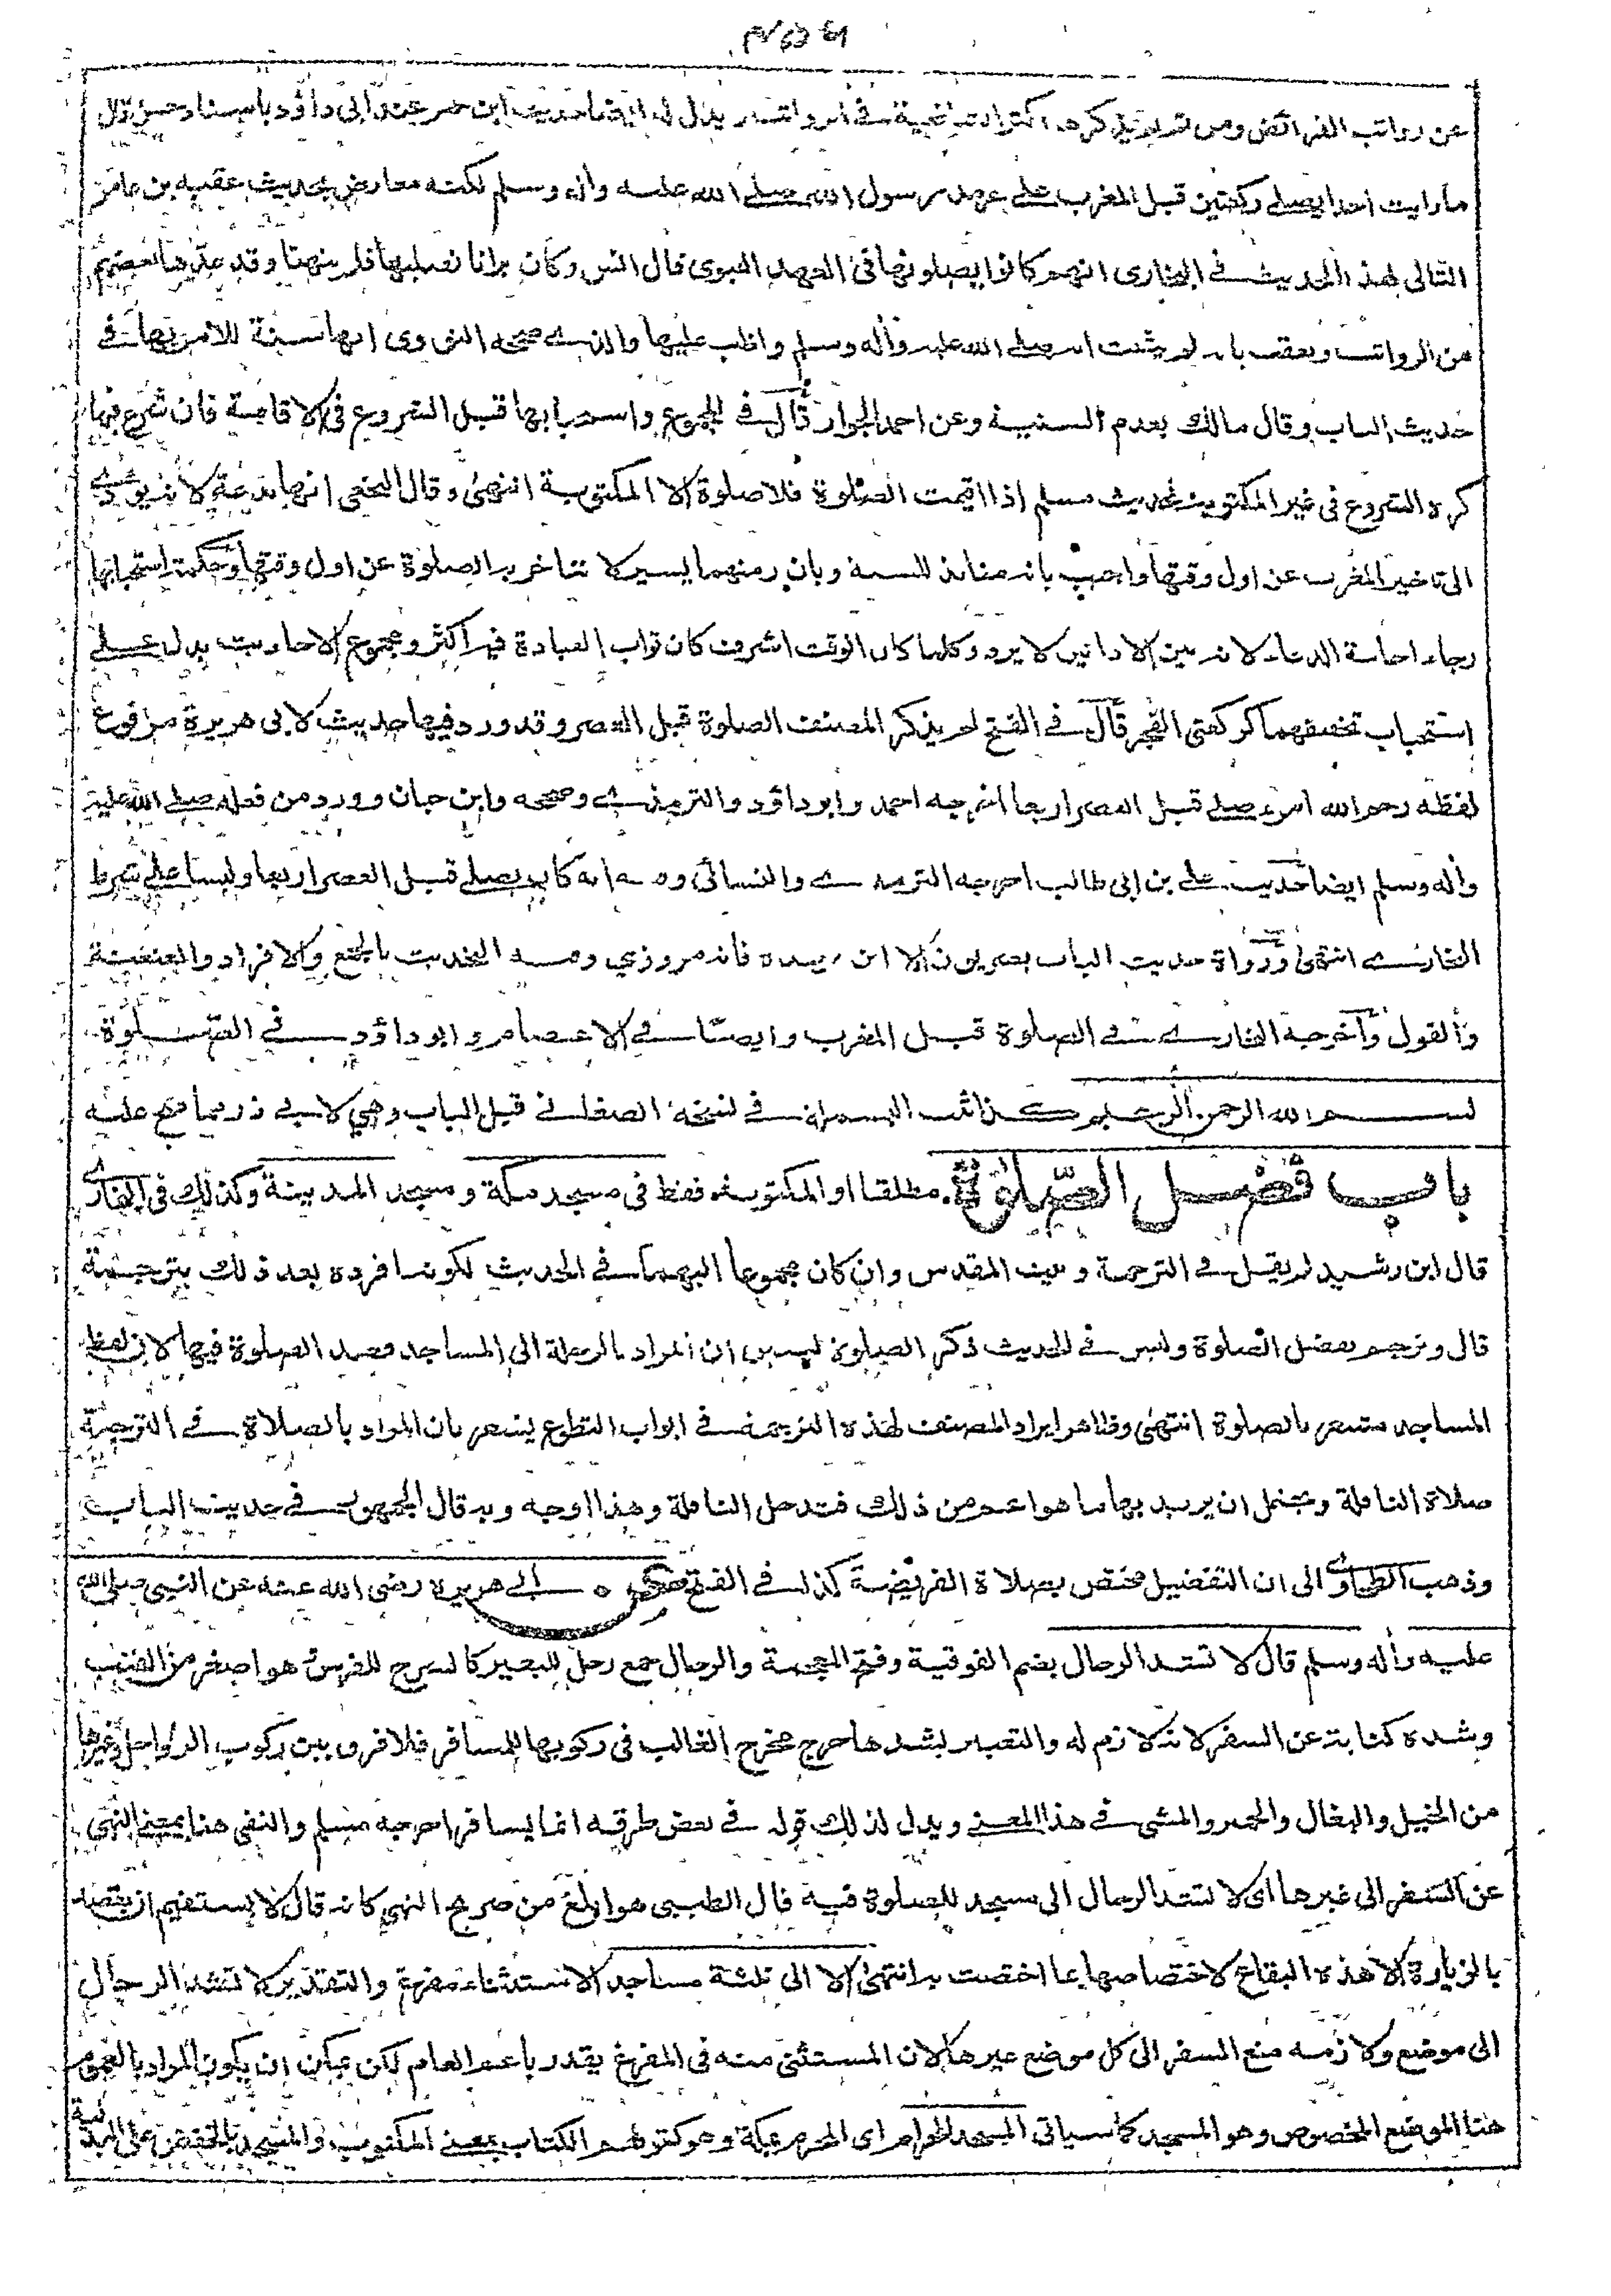 عن رواتب الفرائض ومن ثم لم يذكره اكثر الشافعية في الرواتب يدل له ايضا حديث ابن عمر عند ابى داؤد باسناد حسن قال
ما رايت احدا يصلے ركعتين قبل المغرب علے عهد رسول الله صلے الله عليه واله وسلم لكنه معارض بحديث عقبه بن عامر
التالى لهذا الحديث فے البخارى انهم كانوا يصلونها فى العهد النبوى قال انس وكان يرانا نصليها فلم ينهنا وقد عدها بعضهم
من الرواتب وتعقب بانه لم يثبت انه صلے الله عليه واله وسلم واظب عليها والذے صححه النووى انها سنة للامر بها فے
حديث الباب وقال مالك بعدم السنية وعن احمد الجواز قال فے المجموع واستحبابها قبل الشروع فى الاقامة فان شرع فيها
كره الشروع فى غير المكتوبة لحديث مسلم اذا اقيمت الصلوة فلا صلوة الا المكتوبة انتهى وقال النخعى انها بدعة لانه يودے
الى تاخير المغرب عن اول وقتها واجيب بانه منابذ للسنة وبان زمنهما يسير لا تتاخر به الصلوة عن اول وقتها وحكمة استحبابها
رجاء اجابة الدعاء لانه بين الاذانين لا يرد وكلما كان الوقت اشرف كان ثواب العبادة فيه اكثر ومجموع الاحاديث يدل علے
استحباب تخفيفهما كركعتى الفجر قال فے الفتح لم يذكر المصنف الصلوة قبل العصر وقد ورد فيها حديث لابى هريرة مرفوع
لفظه رحم الله امرء صلے قبل العصر اربعا اخرجه احمد وابو داؤد والترمذے وصححه وابن حبان وورد من فعله صلے الله عليه
واله وسلم ايضا حديث علے بن ابى طالب اخرجه الترمذے والنسائى وفيه انه كان يصلے قبل العصر اربعا وليسا علے شرط
البخارے انتهى ورواة حديث الباب بصريون الا ابن بريدة فانه مروزي وفيه التحديث بالجمع والافراد والعنعنة
والقول واخرجه البخارے فے الصلوة قبل المغرب وايضا فے الاعتصام وابو داؤد فے الصلوة
بسم الله الرحمن الرحيم كذا ثبت البسملة فے نسخة الصغانے قبل الباب وهي لابے ذر مما صح عليه
باب فضل الصلوة مطلقا او المكتوبة فقط فى مسجد مكة ومسجد المدينة وكذلك فى البخارے
قال ابن رشيد لم يقل فے الترجمة وبيت المقدس وان كان مجموعا اليهما فے الحديث لكونه افرده بعد ذلك بترجمة
قال وترجم بفضل الصلوة وليس فے الحديث ذكر الصلوة ليبين ان المراد بالرحلة الى المساجد قصد الصلوة فيها لان لفظ
المساجد مشعر بالصلوة انتهى وظاهر ايراد المصنف لهذه الترجمة فے ابواب التطوع يشعر بان المراد بالصلاة فے الترجمة
صلاة النافلة ويحتمل ان يريد بها ما هو اعم من ذلك فتدخل النافلة وهذا اوجه وبه قال الجمهور فے حديث الباب
وذهب الطحاوے الى ان التفضيل مختص بصلاة الفريضة كذا فے الفتح عن ابے هريرة رضى الله عنه عن النبي صلے الله
عليه واله وسلم قال لا تشد الرحال بضم الفوقية وفتح المعجمة والرحال جمع رحل للبعير كالسرج للفرس هو اصغر من القتب
وشده كناية عن السفر لانه لازم له والتعبير بشدها خرج مخرج الغالب فى ركوبها للمسافر فلا فرق بين ركوب الرواحل وغيرها
من الخيل والبغال والحمير والمشى فے هذا المعنے ويدل لذلك قوله فے بعض طرقه انما يسافر اخرجه مسلم والنفى هنا بمعنے النهى
عن السفر الى غيرها اى لا تشد الرحال الى مسجد للصلوة فيه قال الطيبى هو ابلغ من صريح النهي كانه قال لا يستقيم ان يقصد
بالزيارة الا هذه البقاع لاختصاصها بما اختصت به انتهى الا الى ثلثة مساجد الاستثناء مفرغ والتقدير لا تشد الرحال
الى موضع ولازمه منع السفر الى كل موضع غيرها لان المستثنى منه فى المفرغ يقدر باعم العام لكن يمكن ان يكون المراد بالعموم
هنا الموضع المخصوص وهو المسجد كما سياتى المسجد الحرام اى المحرم بمكة وهو كقولهم الكتاب بمعنے المكتوب والمسجد بالخفض على البدلية